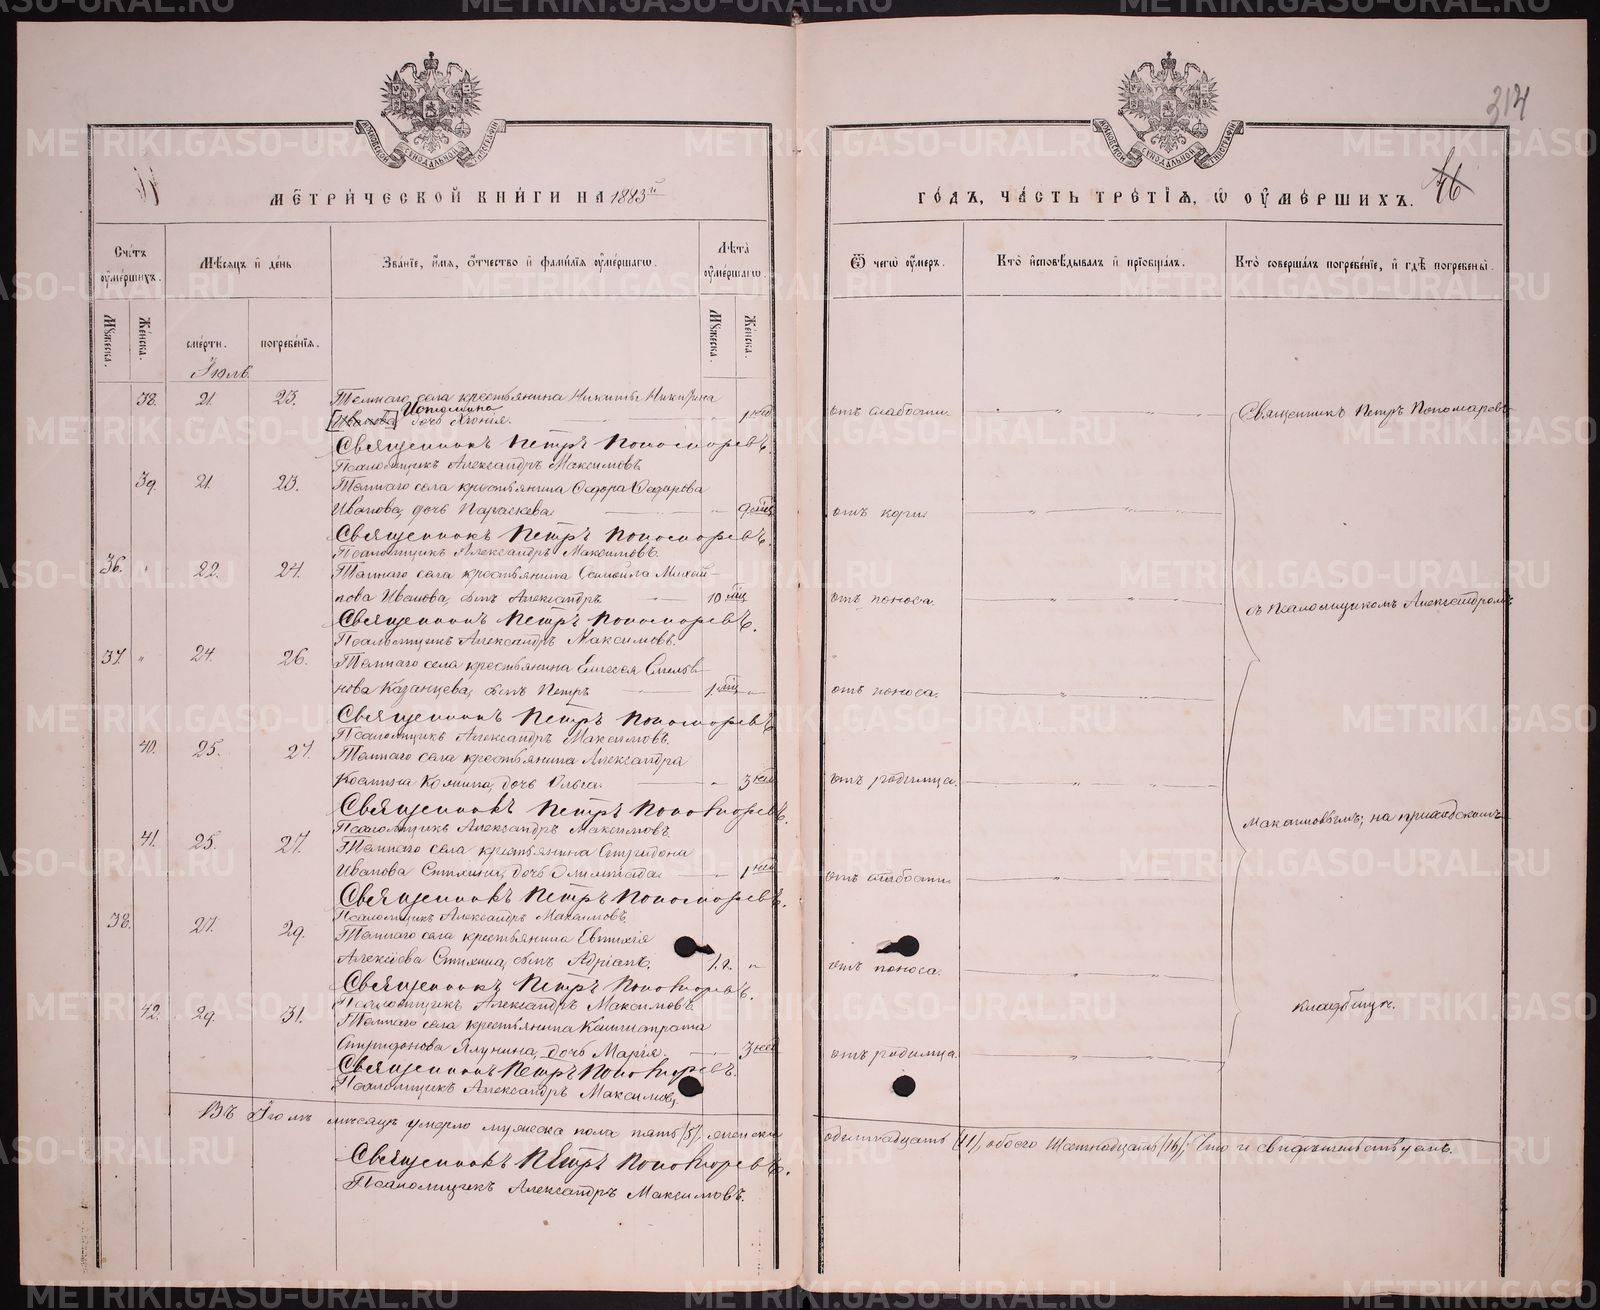 314
46
МЕТРИЧЕСКОЙ КНИГИ НА 1883й
ГОДЪ, ЧАСТЬ ТРЕТІЯ, Ѡ ОУМЕРШИХЪ.
Счетъ оумершихъ.
Мѣсяцъ и день
Званіе, имя, отчество и фамилія оумершагѡ.
Лѣта оумершагѡ.
Ѿ чегѡ оумеръ.
Кто исповѣдывалъ и пріобщалъ.
Кто совершалъ погребеніе, и гдѣ погребены.
Мꙋжеска.
Женска.
смерти.
погребенія.
Мꙋжеска.
Женска.
Іюль
38. 21. 23. Темнаго села крестьянина Никиты Никитина
[Иванова] Истомина дочь Хіонія. 1 нед отъ слабости. Священникъ Петръ Пономаревъ
Священникъ Петръ Пономаревъ.
Псаломщикъ Александръ Максимовъ
39. 21. 23. Темнаго села крестьянина Ѳедора Ѳедорова
Иванова, дочь Параскева 9 мѣс отъ кори
Священникъ Петръ Пономаревъ.
Псаломщикъ Александръ Максимовъ.
36. 22. 24. Темнаго села крестьянина Самойла Михай-
лова Иванова, сынъ Александръ 10 мѣс отъ поноса. съ Псаломщикомъ Александромъ
Священникъ Петръ Пономаревъ.
Псаломщикъ Александръ Максимовъ.
37. 24. 26. Темнаго села крестьянина Елисея
нова Казанцева, сынъ Петръ 1 мѣс отъ поноса.
Священникъ Петръ Пономаревъ
Псаломщикъ Александръ Максимовъ.
40. 25. 27. Темнаго села крестьянина Александра
дочь Ольга. 3 нед отъ родимца.
Священникъ Петръ Пономаревъ.
Псаломщикъ Александръ Максимовъ
Максимовымъ; на приходскомъ
41. 25. 27. Темнаго села крестьянина Спиридона
Иванова дочь Олимпіада 1 нед отъ слабости.
Священникъ Петръ Пономаревъ.
Псаломщикъ Александръ Максимовъ
38. 27. 29. Темнаго села крестьянина Евтихія
Алексѣева сынъ Адріанъ. 1 г. отъ поноса.
Священникъ Петръ Пономаревъ.
Псаломщикъ Александръ Максимовъ кладбищѣ.
42. 29. 31. Темнаго села крестьянина Каллистрата
Спиридонова Ялунина, дочь Марія. 3 нед отъ родимца.
Священникъ Петръ Пономаревъ.
Псаломщикъ Александръ Максимовъ.
Въ Іюлѣ мѣсяцѣ умерло мужеска пола пять /5/, женска одиннадцать /11/, обоего шестнадцать /16/; Что и свидѣтельствуемъ.
Священникъ Петръ Пономаревъ.
Псаломщикъ Александръ Максимовъ.
METRIKI.GASO-URAL.RU